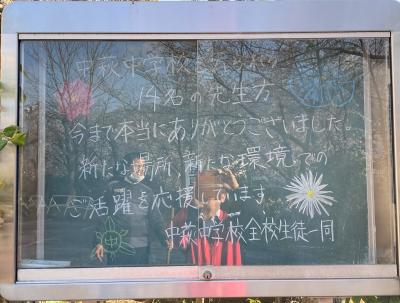 中萩中学校
14名の先生方
今まで本当にありがとうございました。
新たな場所、新たな環境での
活躍を応援しています
中萩中学校全校生徒一同